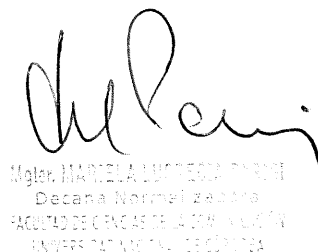 Mgter. MARCELA LUCRECIA PARISI
Decana Normalizadora
FACULTAD DE CIENCIAS DE LA COMUNICACIÓN
UNIVERSIDAD NACIONAL DE CÓRDOBA